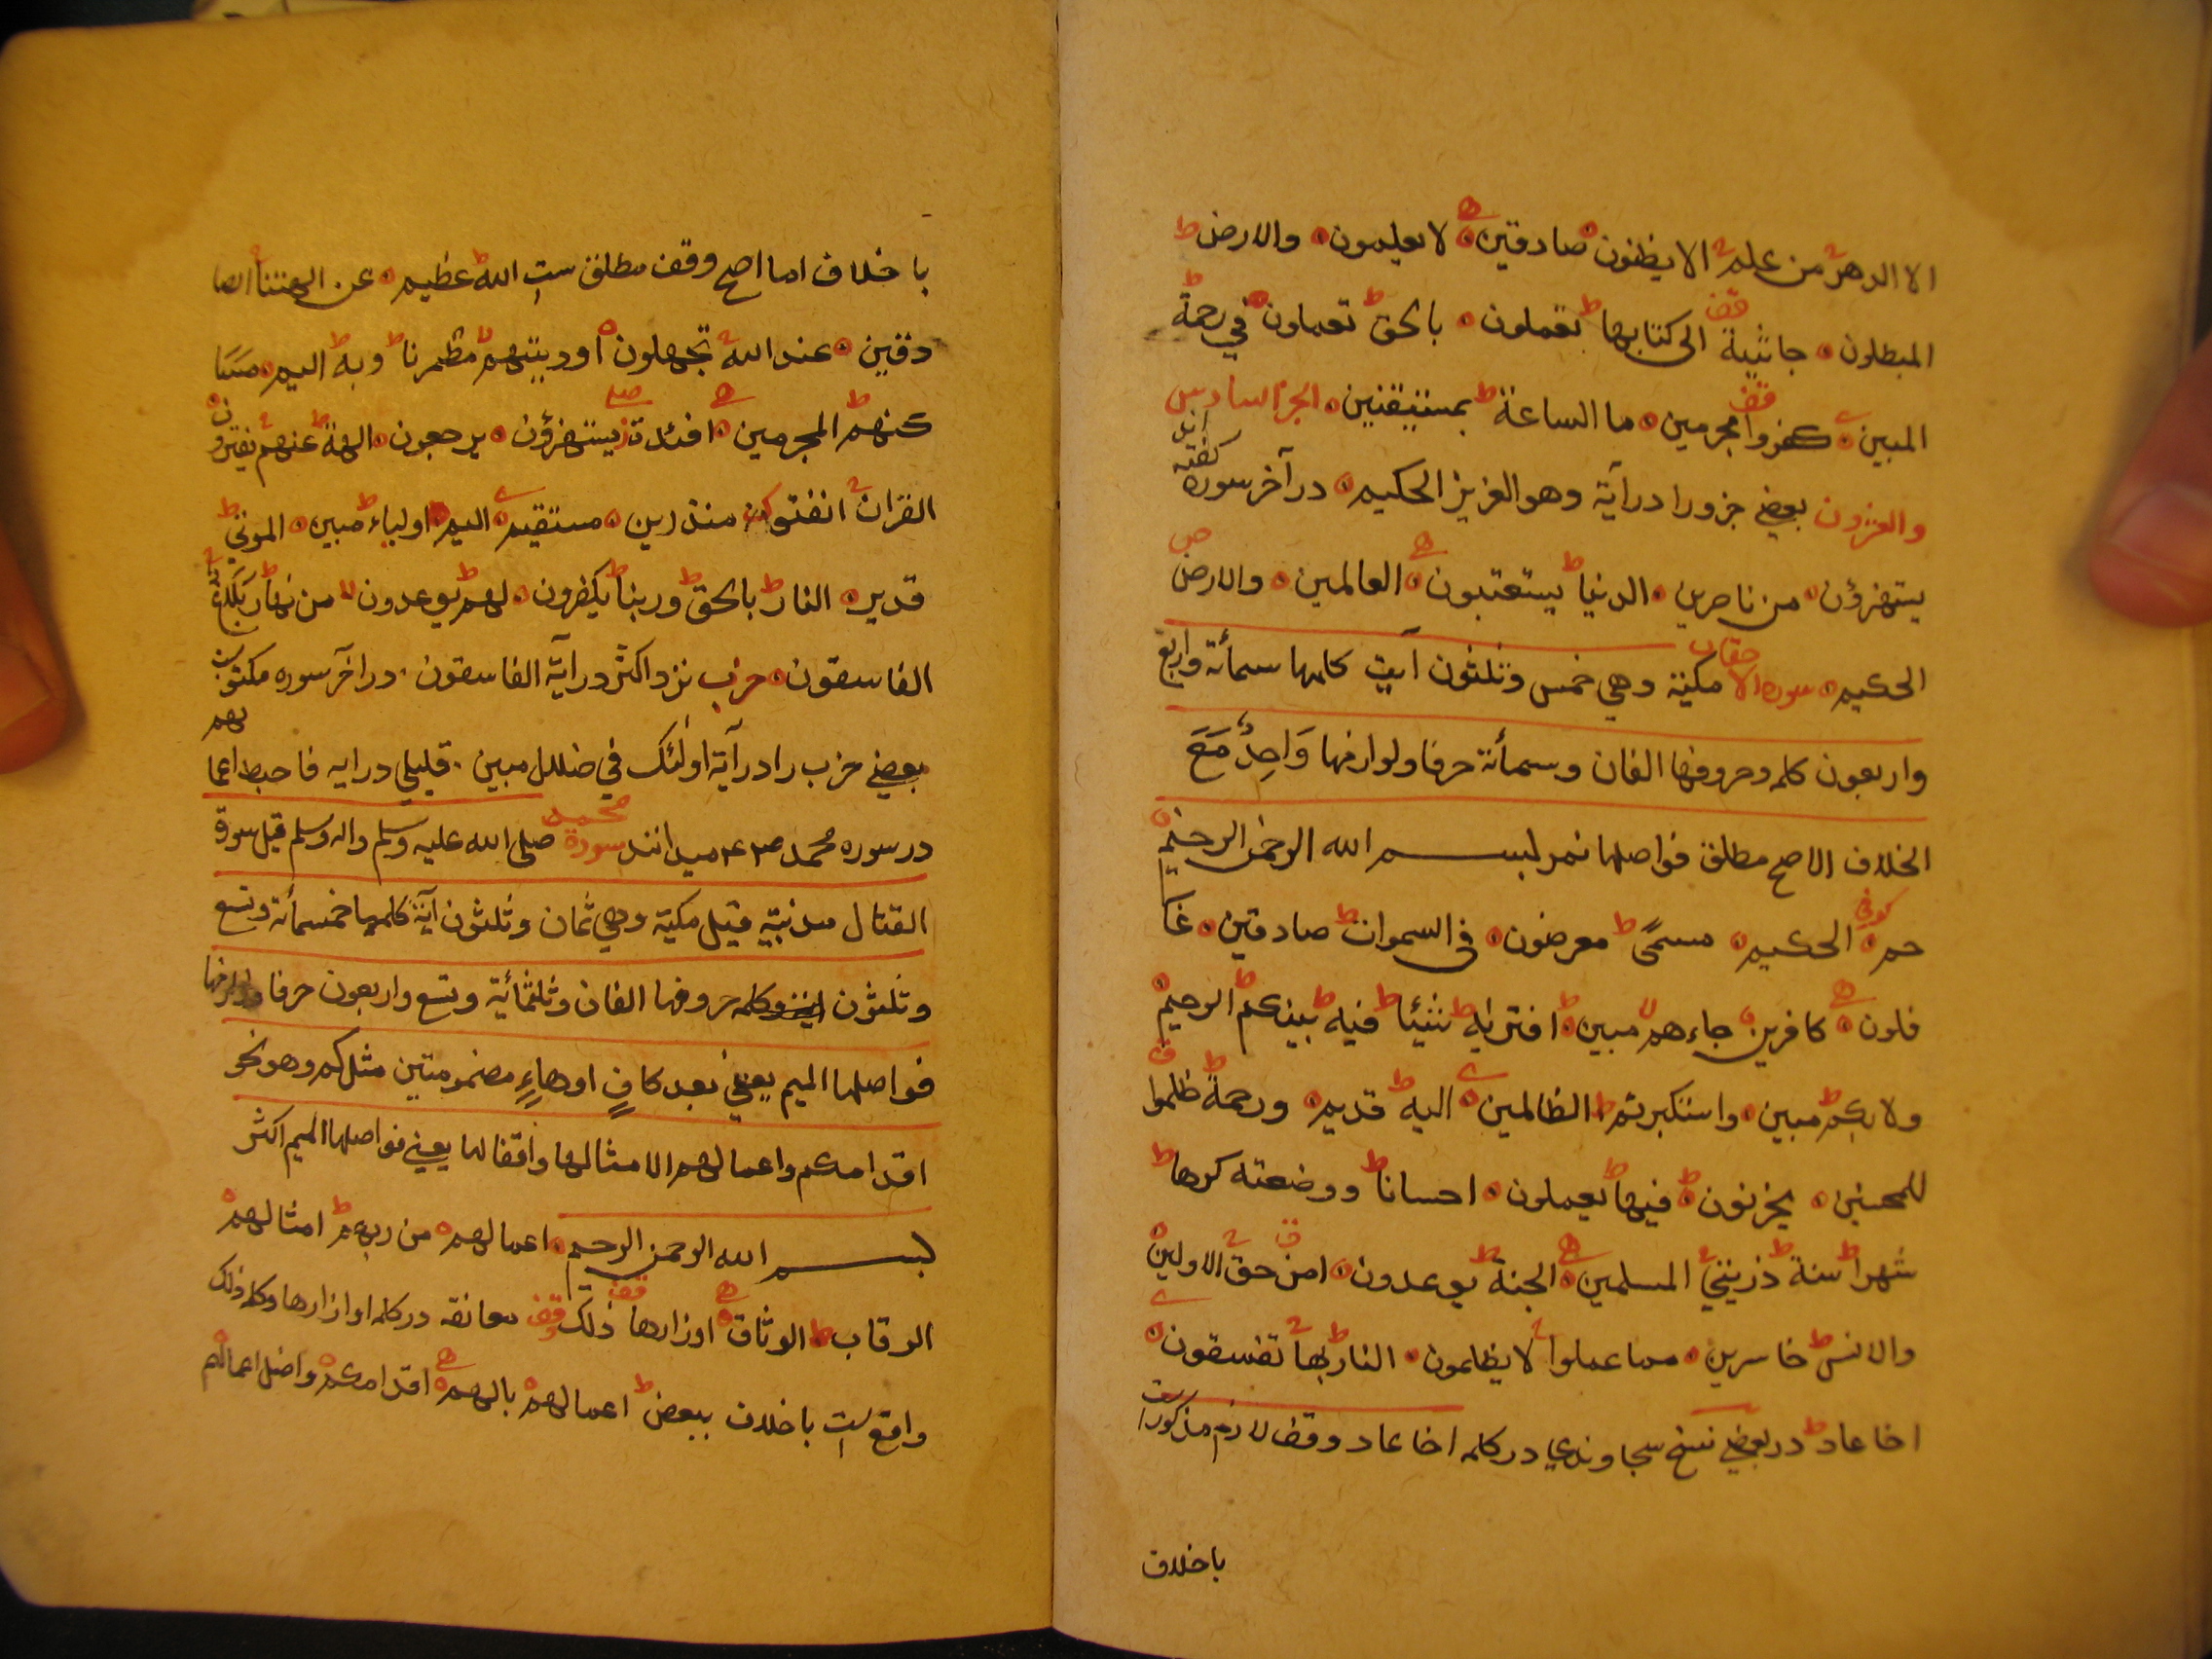 الا الدهر من علم الا يظنون صادقين لا يعلمون والارض
المبطلون جاثية قف الى كتابها تعملون بالحق تعملون في رحمة
المبين كفروا قف مجرمين ما الساعة بمستيقنين الجزء السادس
والعشرون بعضى جزو را در آية وهو العزيز الحكيم در آخر سوره گفته اند
يستهزؤن من ناصرين الدنيا يستعتبون العالمين والارض
الحكيم سورة الاحقاف مكية وهي خمس وثلثون آيت كلمها ستمائة واربع
واربعون كلمه وحروفها الفان وستمأئة حرفا ولوازمها وَاحِدٌ مَعَ
الخلاف الاصح مطلق فواصلها نمر بسم الله الرحمن الرحيم
حم كوفي الحكيم مسمًى معرضون في السموات صادقين غا
فلون كافرين جاءهم مبين افتريه شيئا فيه بينكم الرحيم
ولا بكم مبين واستكبرتم الظالمين اليه قديم ورحمة ظلموا
للمحسنين يحزنون فيها يعملون احسانا ووضعته كرها
شهرا سنة ذريتي المسلمين الجنة يوعدون امن حق الاولين
والانس خاسرين مما عملوا لا يظلمون النار بها تفسقون
اخا عاد در بعضى نسخ سجاوندي در كلمه اخا عاد وقف لازم مذكور است
باخلاف
باخلاف اما اصح وقف مطلق ست الله عظيم عن الهتنا الصا
دقين عند الله تجهلون اوديتهم ممطرنا به اليم مسا
كنهم المجرمين افئدة يستهزؤن يرجعون الهة عنهم يفترون
القران انصتوا منذرين مستقيم اليم اولياء مبين الموتى
قدير النار بالحق وربنا يكفرون لهم يوعدون من نهار بلاغ
الفاسقون حزب نزد اكثر در آية الفاسقون در آخر سوره مكتوبست
بعضى حزب را در آية اولئك في ضلل مبين قليلى در ايه فاحبط اعمالهم
در سوره محمد ص ع م ميدانند سورة محمد صلى الله عليه وسلم واله وسلم قيل سورة
القتال مدنية قيل مكية وهي ثمان وثلثون آية كلمها خمسمأئة وتسع
وثلثون كلمه حروفها الفان وثلثمأئة وتسع واربعون حرفا ولوازمها
فواصلها الميم يعني بعد كافٍ او هاءٍ مضمومتين مثل كم وهو نحو
اقدامكم واعمالهم الا مثالها واقفالها يعني فواصلها الميم اكثر
بسم الله الرحمن الرحيم اعمالهم من ربهم امثالهم
الرقاب الوثاق اوزارها قف ذلك وقف معانقه در كلمه اوزارها وكلمه ذلك
واقع است باخلاف ببعض اعمالهم بالهم اقدامكم واضل اعمالهم